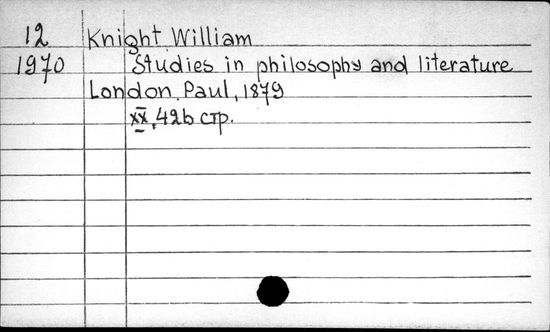 12 Knight William
1970 Studies in philosophy and literature
London, Paul, 1879
XX, 426 стр.